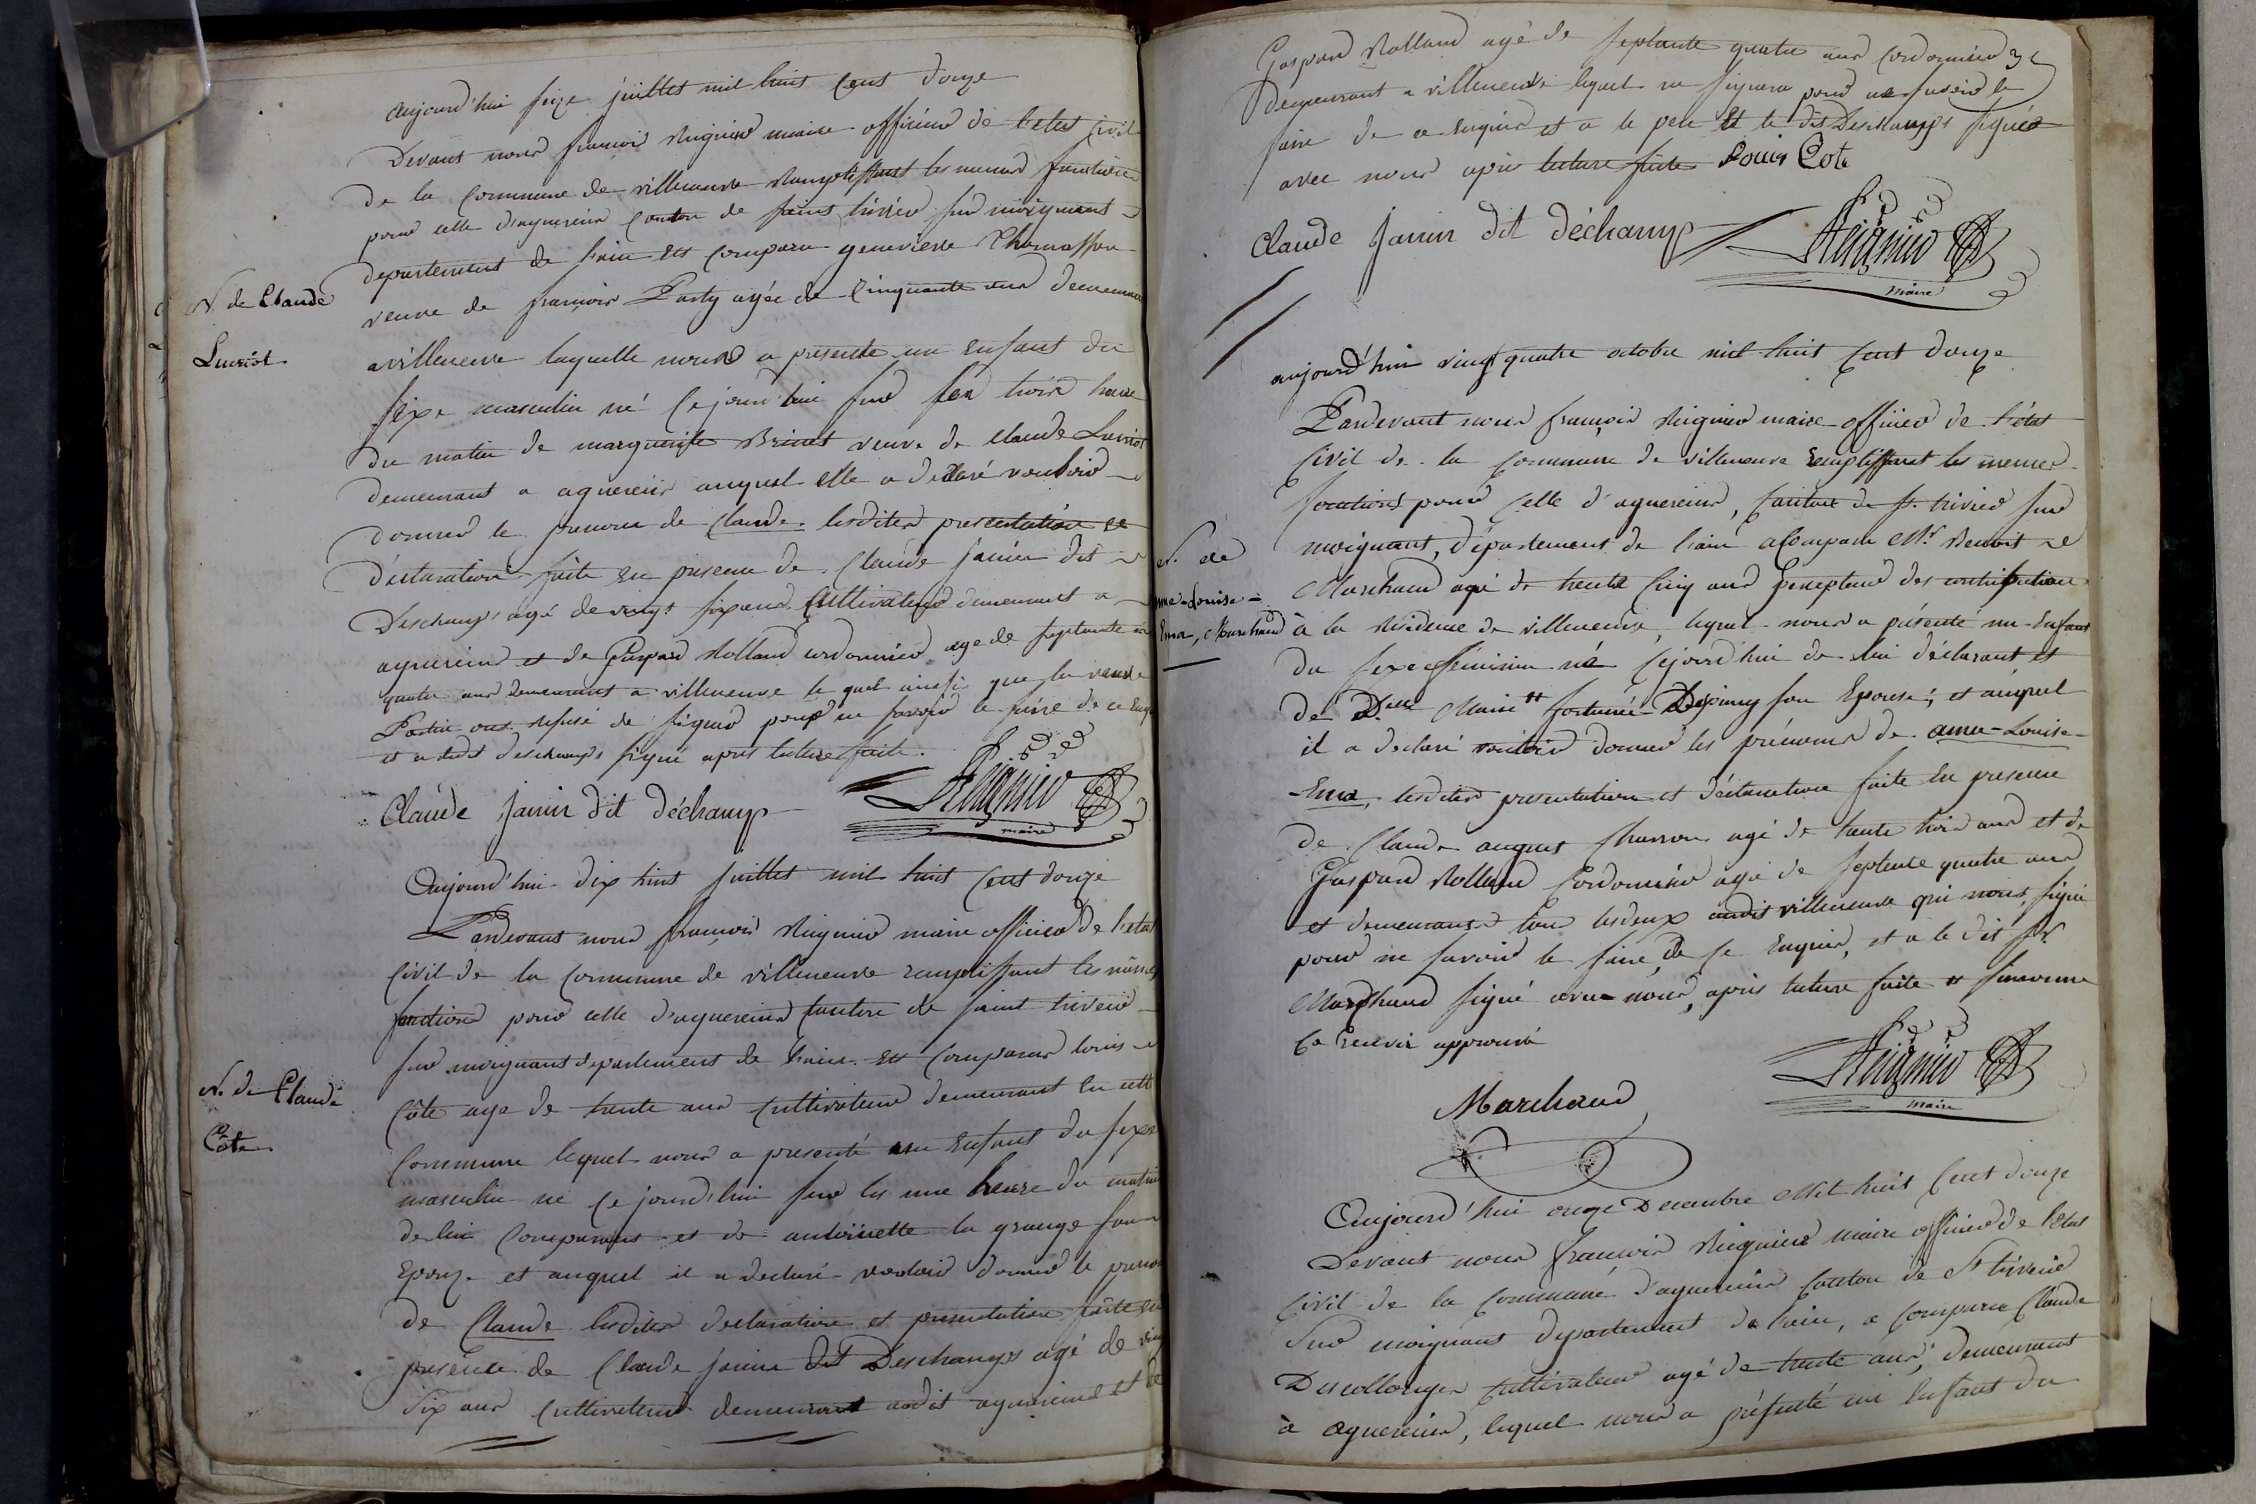 aujourd'hui seize juillet mil huit cent douze
Devant nous françois Reignier maire officier de l'etat civil
de la commune de villeneuve Remplissant les memes fonctions
pour celle d'aguereins canton de saint trivier sur moignant
departement de l'ain est comparu genevieve Thomasson
veuve de françois Party agée de cinquante ans demeurant
N. de Claude
Luviot
a villeneuve laquelle nous a presenté un enfant du
sexe masculin né cejourd'hui sur les trois heure
du matin de marguerite Brinet veuve de claude Luviot
demeurant a aguereins auquel elle a declaré vouloir
donner le prenom de Claude. lesdites presentation et
déclaration faite en presence de Claude janin dit
Deschamps agé de vingt six ans cultivateur demeurant a
aguereins et de Gaspard Rolland cordonnier age de septante
quatre ans demeurant a villeneuve le quel ainsi que la veuve
ont refusé de signer pour ne savoir le faire de ce enquis
et a ledit deschamps signé apres lecture faite.
Claude janin dit déchamp
Reignier
maire
Aujourd'hui dix huit juillet mil huit cent douze
Pardevant nous françois Reignier maire officier de l'etat
civil de la commune de villeneuve remplissant les mêmes
fonctions pour celle d'aguereins canton de saint trivier
sur moignant departement de l'ain est comparu louis
N. de Claude
Côte
Côte age de trente ans cultivateur demeurant en cette
commune lequel nous a presenté un enfant du sexe
masculin né cejourd'hui sur les une heure du matin
de lui comparant et de antoinette la grange son
Epouze et auquel il a declaré vouloir donner le prenom
de Claude lesdites declaration et presentation faite en
presence de Claude janin dit Deschamps agé de vingt
six ans cultivateur demeurant audit aguereins et de
Gaspard Rolland agé de septante quatre ans cordonnier
demeurant a villeneuve lequel ne signera pour ne savoir le
faire de ce enquis et a le pere et le dit Deschamps signés
avec nous après lecture faite Louis Cote
Claude janin dit déchamp
Reignier
maire
aujourd'hui vingt quatre octobre mil huit cent douze
Pardevant nous françois Reignier maire officier de l'état
civil de la commune de villeneuve remplissant les memes
fonctions pour celle d'aguereins, canton de st. trivier sur
N. de
Louise
Ema, Marchand
moignant, département de l'ain a comparu Mr. Benoit
Marchand agé de trente cinq ans percepteur des contributions
à la Residence de villeneuve, lequel nous a présenté un Enfant
du sexe féminin né cejourd'hui de lui déclarant et
de Delle Marie fortunée son Epouse; et auquel
il a declaré vouloir donner les prénoms de anne-Louise-
Ema, lesdites presentation et déclaration faite en presence
de Claude august agé de trente trois ans et de
Gaspard Rolland Cordonnier agé de septente quatre ans
et demeurans tous les deux audit villeneuve qui n'ont, signé
pour ne savoir le faire, de ce Enquis, et a le dit sr.
Marchand signé avec nous, après lecture faite
ce renvoi approuvé
Marchand
Reignier
maire
Aujourd'hui onze Decembre Mil huit cent douze
Devant nous françois Reignier maire officier de l'état
civil de la commune d'aguereins canton de St. trivier
Sur moignant departement de l'ain, a comparu Claude
Descollonges cultivateur agé de trente ans, demeurant
à aguereins, lequel nous a présenté un Enfant du